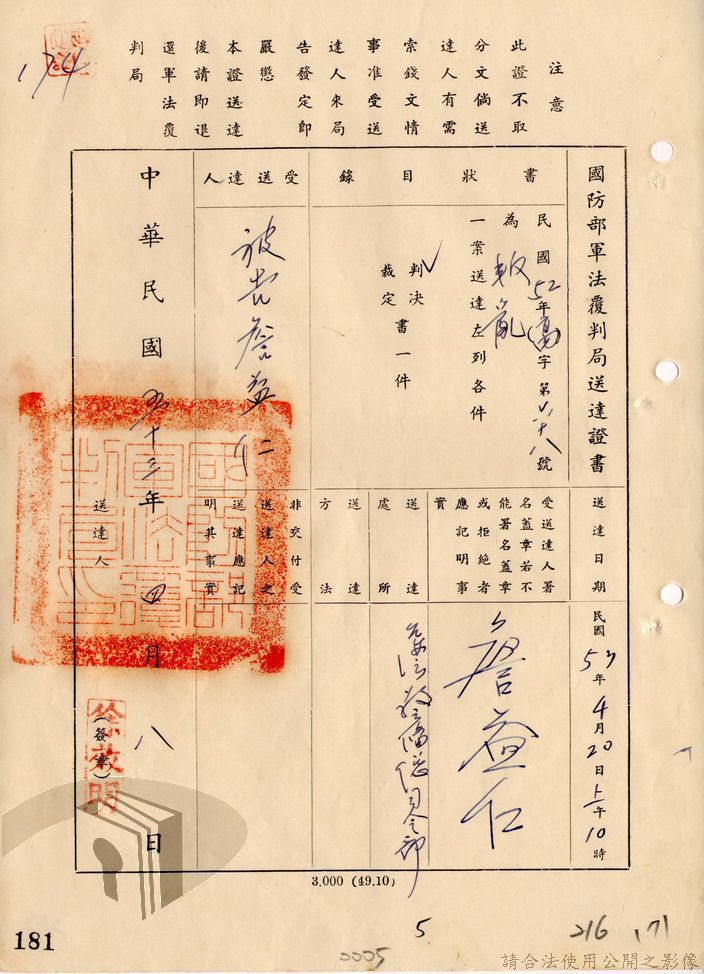 注意
此證不取
分文倘送
達人有需
索錢文情
事准受送
達人來局
告發定即
嚴懲
本證送達
後請即退
還軍法覆
判局
174
國防部軍法覆判局送達證書
送達日期
民國53年4月20日上午10時
書狀目錄
民國52年(高)字第六十八號
為叛亂
一案送達左列各件
判決
裁定
書一件
受送達人
被告詹益仁
受送達人署
名蓋章若不
能署名蓋章
或拒絕者
應記明事
實
詹益仁
送達
處所
警備總司令部
送達
方法
非交付受
送達人之
送達應記
明其事實
中華民國五十三年四月八日
送達人
徐啟明
(簽章)
3.000 (49.10)
181
0005
5
216
171
請合法使用公開之影像